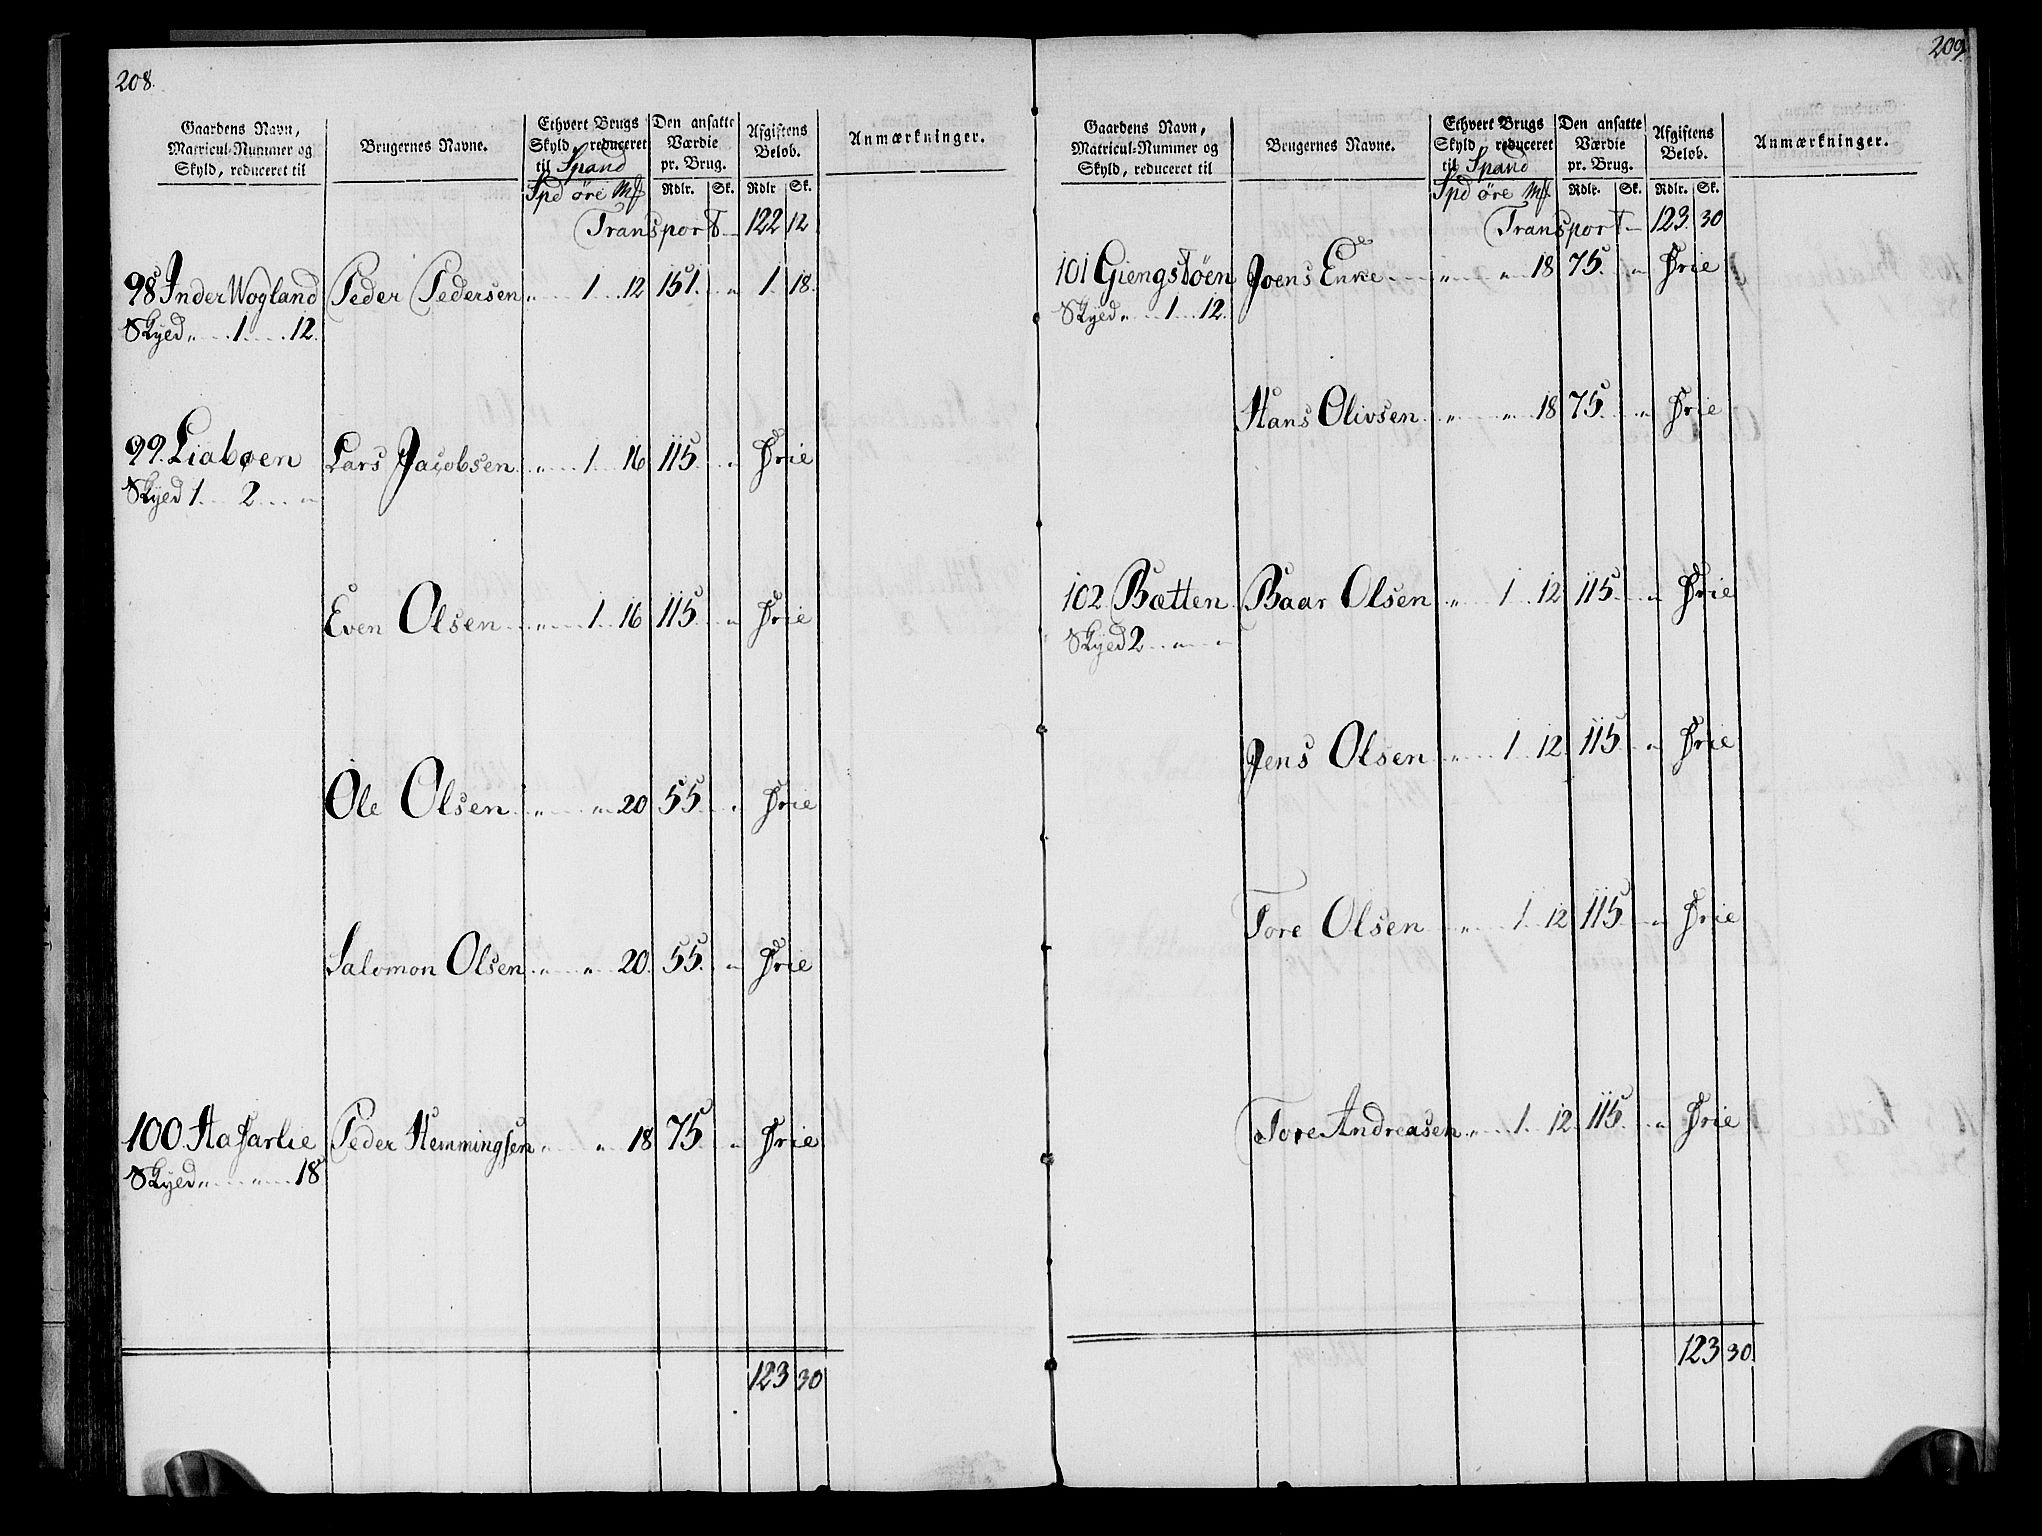 208.
Gaardens Navn, Matricul-Nummer og Skyld, reduceret til
Brugernes Navne.
Ethvert Brugs Skyld, reduceret til Spand
Spd øre Mk
Den ansatte Værdie pr. Brug.
Rdlr. Sk.
Afgiftens Beløb.
Rdlr Sk.
Anmærkninger.
Transport 122 12
98 Inder Wogland Peder Pedersen „ 1 12 151. „ 1 18.
Skyld „ 1 12.
99. Liabøen Lars Jacobsen „ 1 16 115. „ Frie
Skyld 1 2 „
Even Olsen „ 1 16 115. „ Frie
Ole Olsen „ „ 20 55. „ Frie
Salomon Olsen „ „ 20. 55. „ Frie
100. Aafarlie Peder Hemmingsen „ „ 18 75. „ Frie
Skyld „ „ 18
123 30
209.
Gaardens Navn, Matricul-Nummer og Skyld, reduceret til
Brugernes Navne.
Ethvert Brugs Skyld, reduceret til Spand
Spd øre Mk.
Den ansatte Værdie pr. Brug.
Rdlr. Sk.
Afgiftens Beløb.
Rdlr. Sk.
Anmærkninger.
Transport 123. 30
101 Giengstøen Joens Enke „ „ 18 75. „ Frie
Skyld „ 1 12.
Hans Olivsen „ „ 18 75. „ Frie
102 Bætten Baar Olsen „ 1 12 115. „ Frie
Skyld 2 „ „
Jens Olsen „ 1 12 115. „ Frie
Tore Olsen „ 1 12 115. „ Frie
Tore Andreasen „ 1 12 115. „ Frie
123 30.